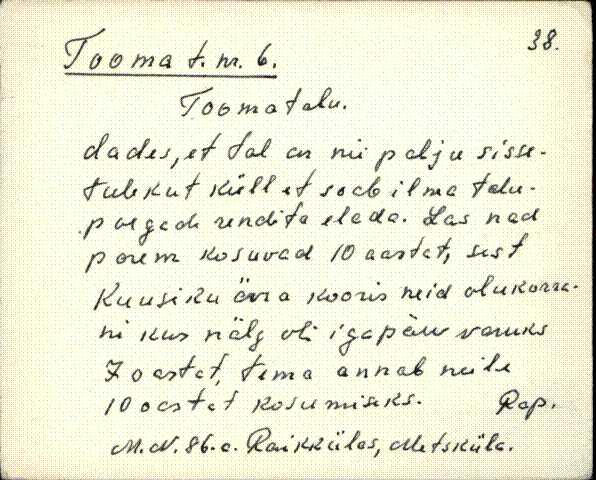 38.
Tooma t. nr. 6.
Toomatalu.
dades, et tal on nii palju sisse-
tulekut küll et saab ilma talu-
poegade rendita elada. Las nad
parem kosuvad 10 aastat, sest
Kuusiku ärra kooris neid olukorra-
ni kus nälg oli igapäev varuks
7 aastat, tema annab neile
10 aastat kosumiseks. Rap.
M.N. 86.a. Raikkülas, Metsküla.